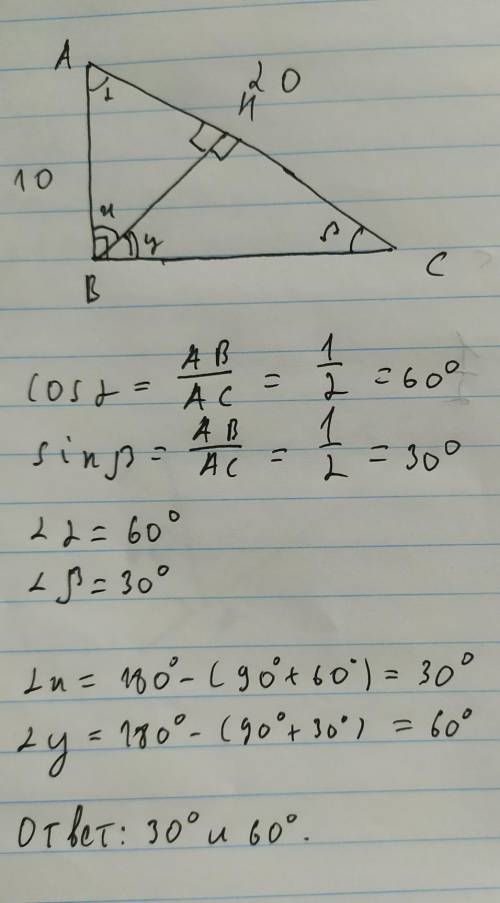 A
α
20
H
10
x
y
β
B
C
cos α = AB/AC = 1/2 = 60°
sin β = AB/AC = 1/2 = 30°
∠α = 60°
∠β = 30°
∠x = 180° - (90° + 60°) = 30°
∠y = 180° - (90° + 30°) = 60°
Ответ: 30° и 60°.